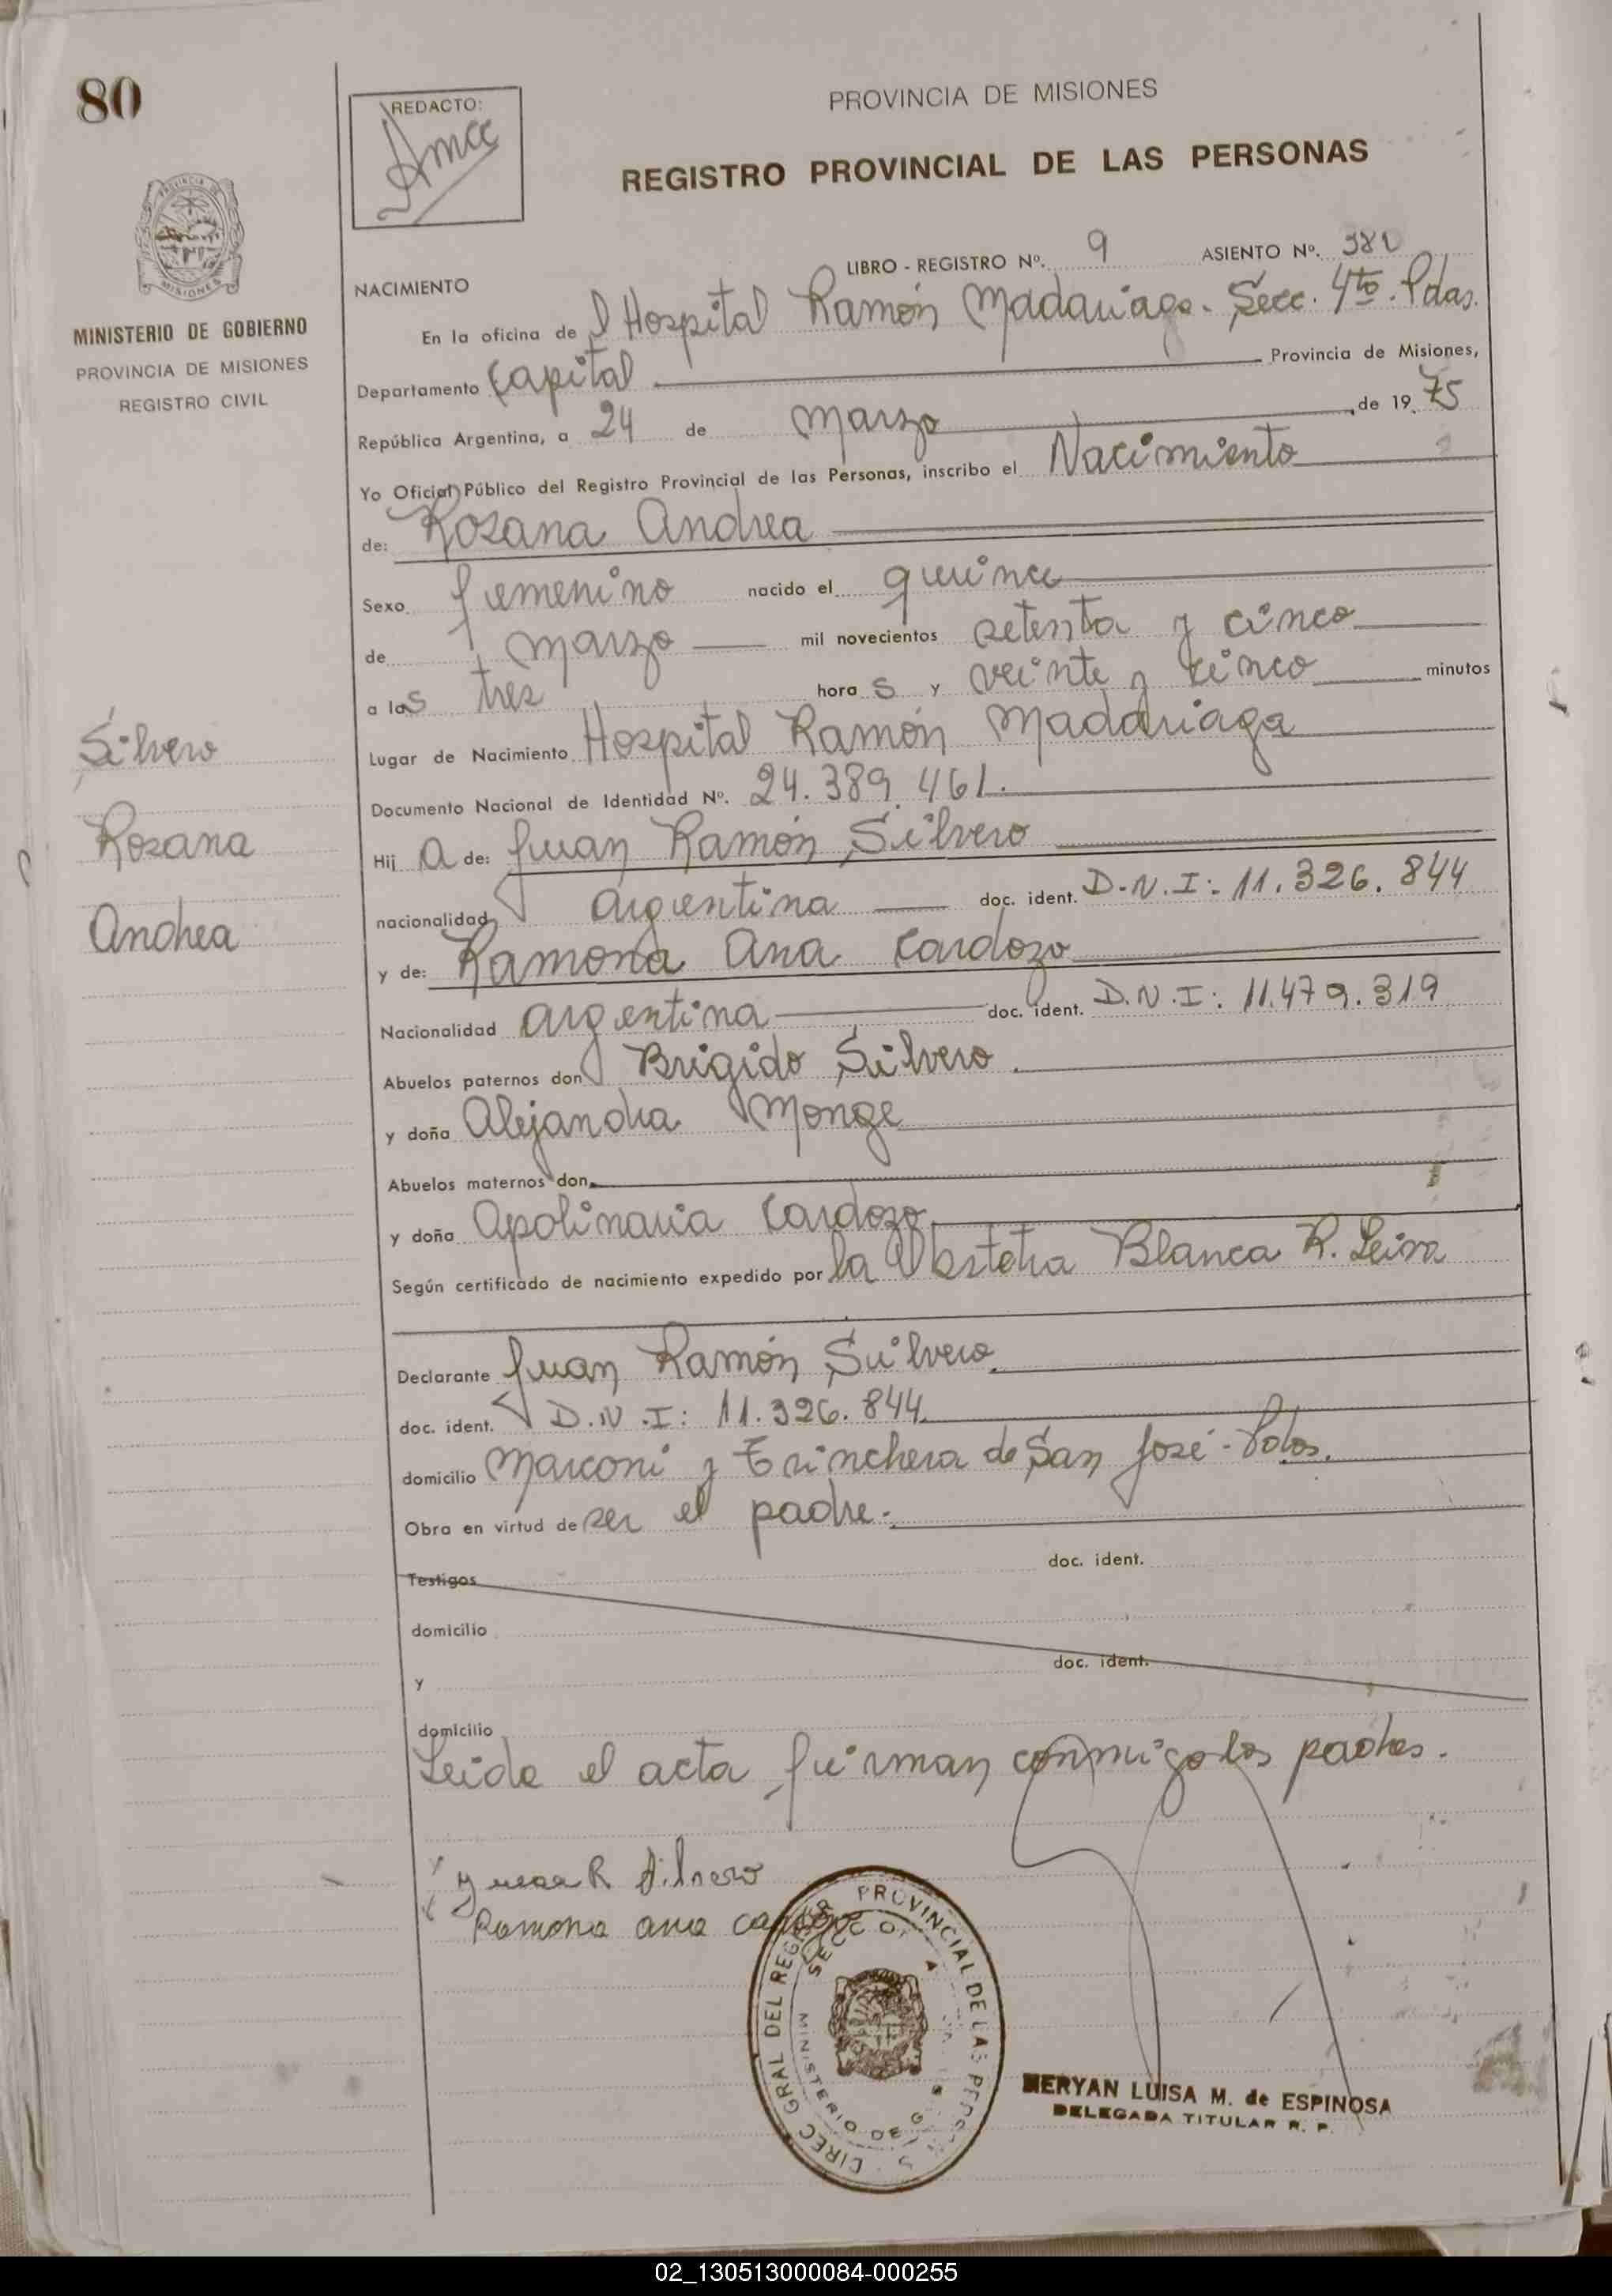 80
REDACTO:
PROVINCIA DE MISIONES
REGISTRO PROVINCIAL DE LAS PERSONAS
PROVINCIA DE
MISIONES
MINISTERIO DE GOBIERNO
PROVINCIA DE MISIONES
REGISTRO CIVIL
LIBRO - REGISTRO Nº. 9 ASIENTO Nº. 381
NACIMIENTO
En la oficina de l Hospital Ramón Madariaga. Secc. 4to. Pdas.
Departamento Capital Provincia de Misiones,
República Argentina, a 24 de Marzo de 19 75
Yo Oficial Público del Registro Provincial de las Personas, inscribo el Nacimiento
de: Rosana Andrea
Sexo femenino nacido el quince
de marzo mil novecientos setenta y cinco
a las tres hora s y veinte y cinco minutos
Lugar de Nacimiento Hospital Ramón Madariaga
Documento Nacional de Identidad Nº. 24.389.461.
Hij a de: Juan Ramón Silvero
nacionalidad argentina doc. ident. D.N.I: 11.326.844
y de: Ramona Ana Cardozo
Nacionalidad argentina doc. ident. D.N.I: 11.479.319
Abuelos paternos don Brigido Silvero
y doña Alejandra Monge
Abuelos maternos don
y doña Apolinaria Cardozo
Según certificado de nacimiento expedido por la Obstetra Blanca R. Leiva
Declarante Juan Ramón Silvero
doc. ident. D.N.I: 11.326.844
domicilio Marconi y Trinchera de San José - Pdas.
Obra en virtud de ser el padre.
Testigos doc. ident.
domicilio
y doc. ident.
domicilio
Leida el acta firman conmigo los padres.
Silvero
Rosana
Andrea
Juan R Silvero
Ramona ana cardozo
DIREC GRAL DEL REGISTRO PROVINCIAL DE LAS PERSONAS
MINISTERIO DE
MERYAN LUISA M. de ESPINOSA
DELEGADA TITULAR R. P.
02_130513000084-000255